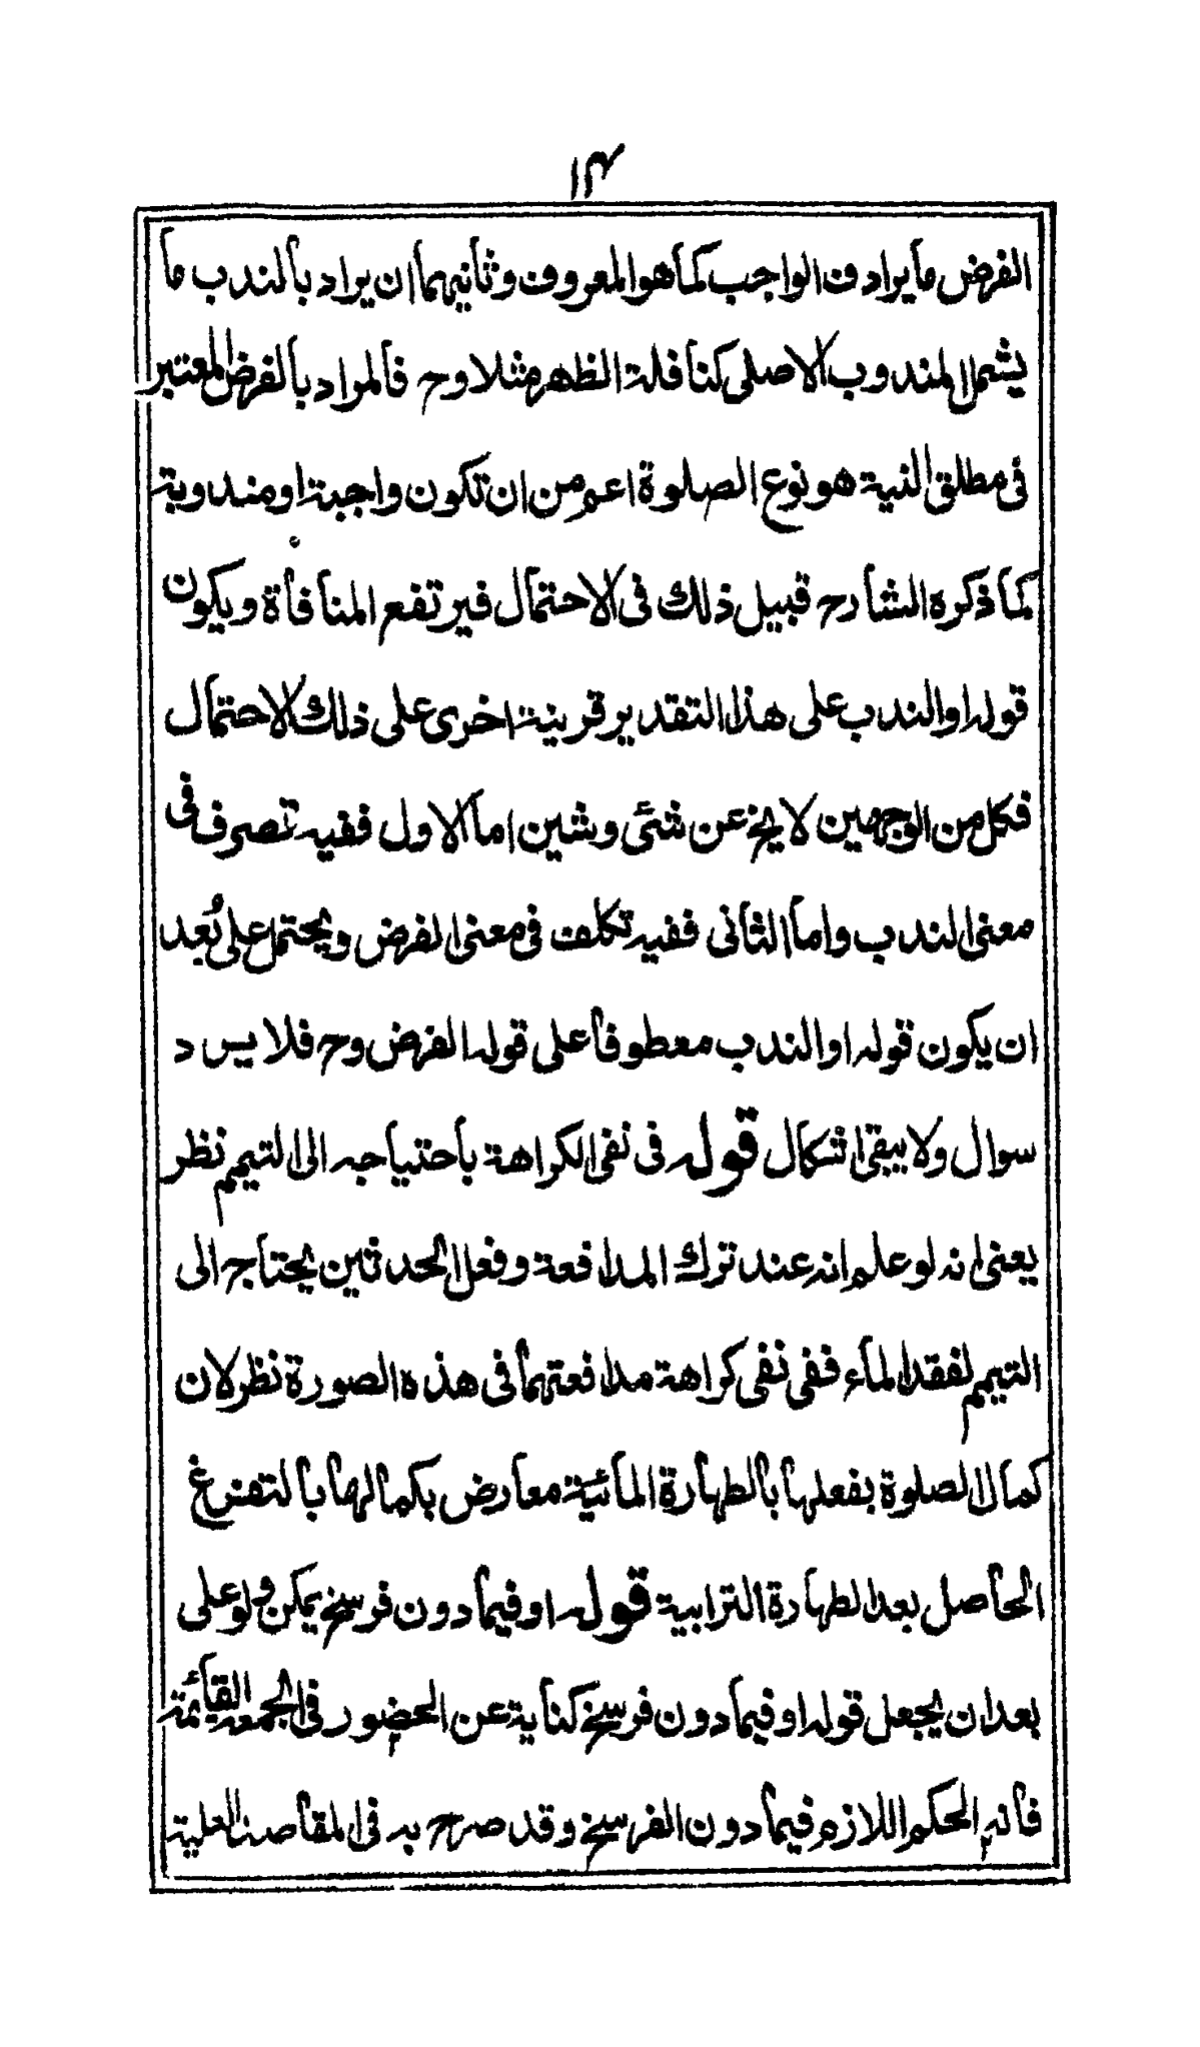 ١٣
الفرض ما يرادف الواجب كما هو المعروف وثانيهما ان يراد بالندب ما
يشمل المندوب الاصلى كنافلة الظهر مثلا وح فالمراد بالفرض المعتبر
فى مطلق النية هو نوع الصلوة اعم من ان تكون واجبة او مندوبة
كما ذكره الشارح قبيل ذلك فى الاحتمال فيرتفع المنافاة ويكون
قوله او الندب على هذا التقدير قرينة اخرى على ذلك الاحتمال
فكل من الوجهين لا يخ عن شئ وشين اما الاول ففيه تصرف فى
معنى الندب واما الثانى ففيه تكلف فى معنى الفرض ويحتمل على بُعد
ان يكون قوله او الندب معطوفا على قوله الفرض وح فلا يرد
سوال ولا يبقى اشكال قوله فى نفى الكراهة باحتياجه الى التيمم نظر
يعنى انه لو علم انه عند ترك المدافعة وفعل الحدثين يحتاج الى
التيمم لفقد الماء ففى نفى كراهة مدافعتهما فى هذه الصورة نظر لان
كمال الصلوة بفعلها بالطهارة المائية معارض بكمالها بالتفرغ
الحاصل بعد الطهارة الترابية قوله او فيما دون فرسخ يمكن ولو على
بعد ان يجعل قوله او فيما دون فرسخ كناية عن الحضور فى الجمعة القائمة
فانه الحكم اللازم فيما دون الفرسخ وقد صرح به فى المقاصد العلية